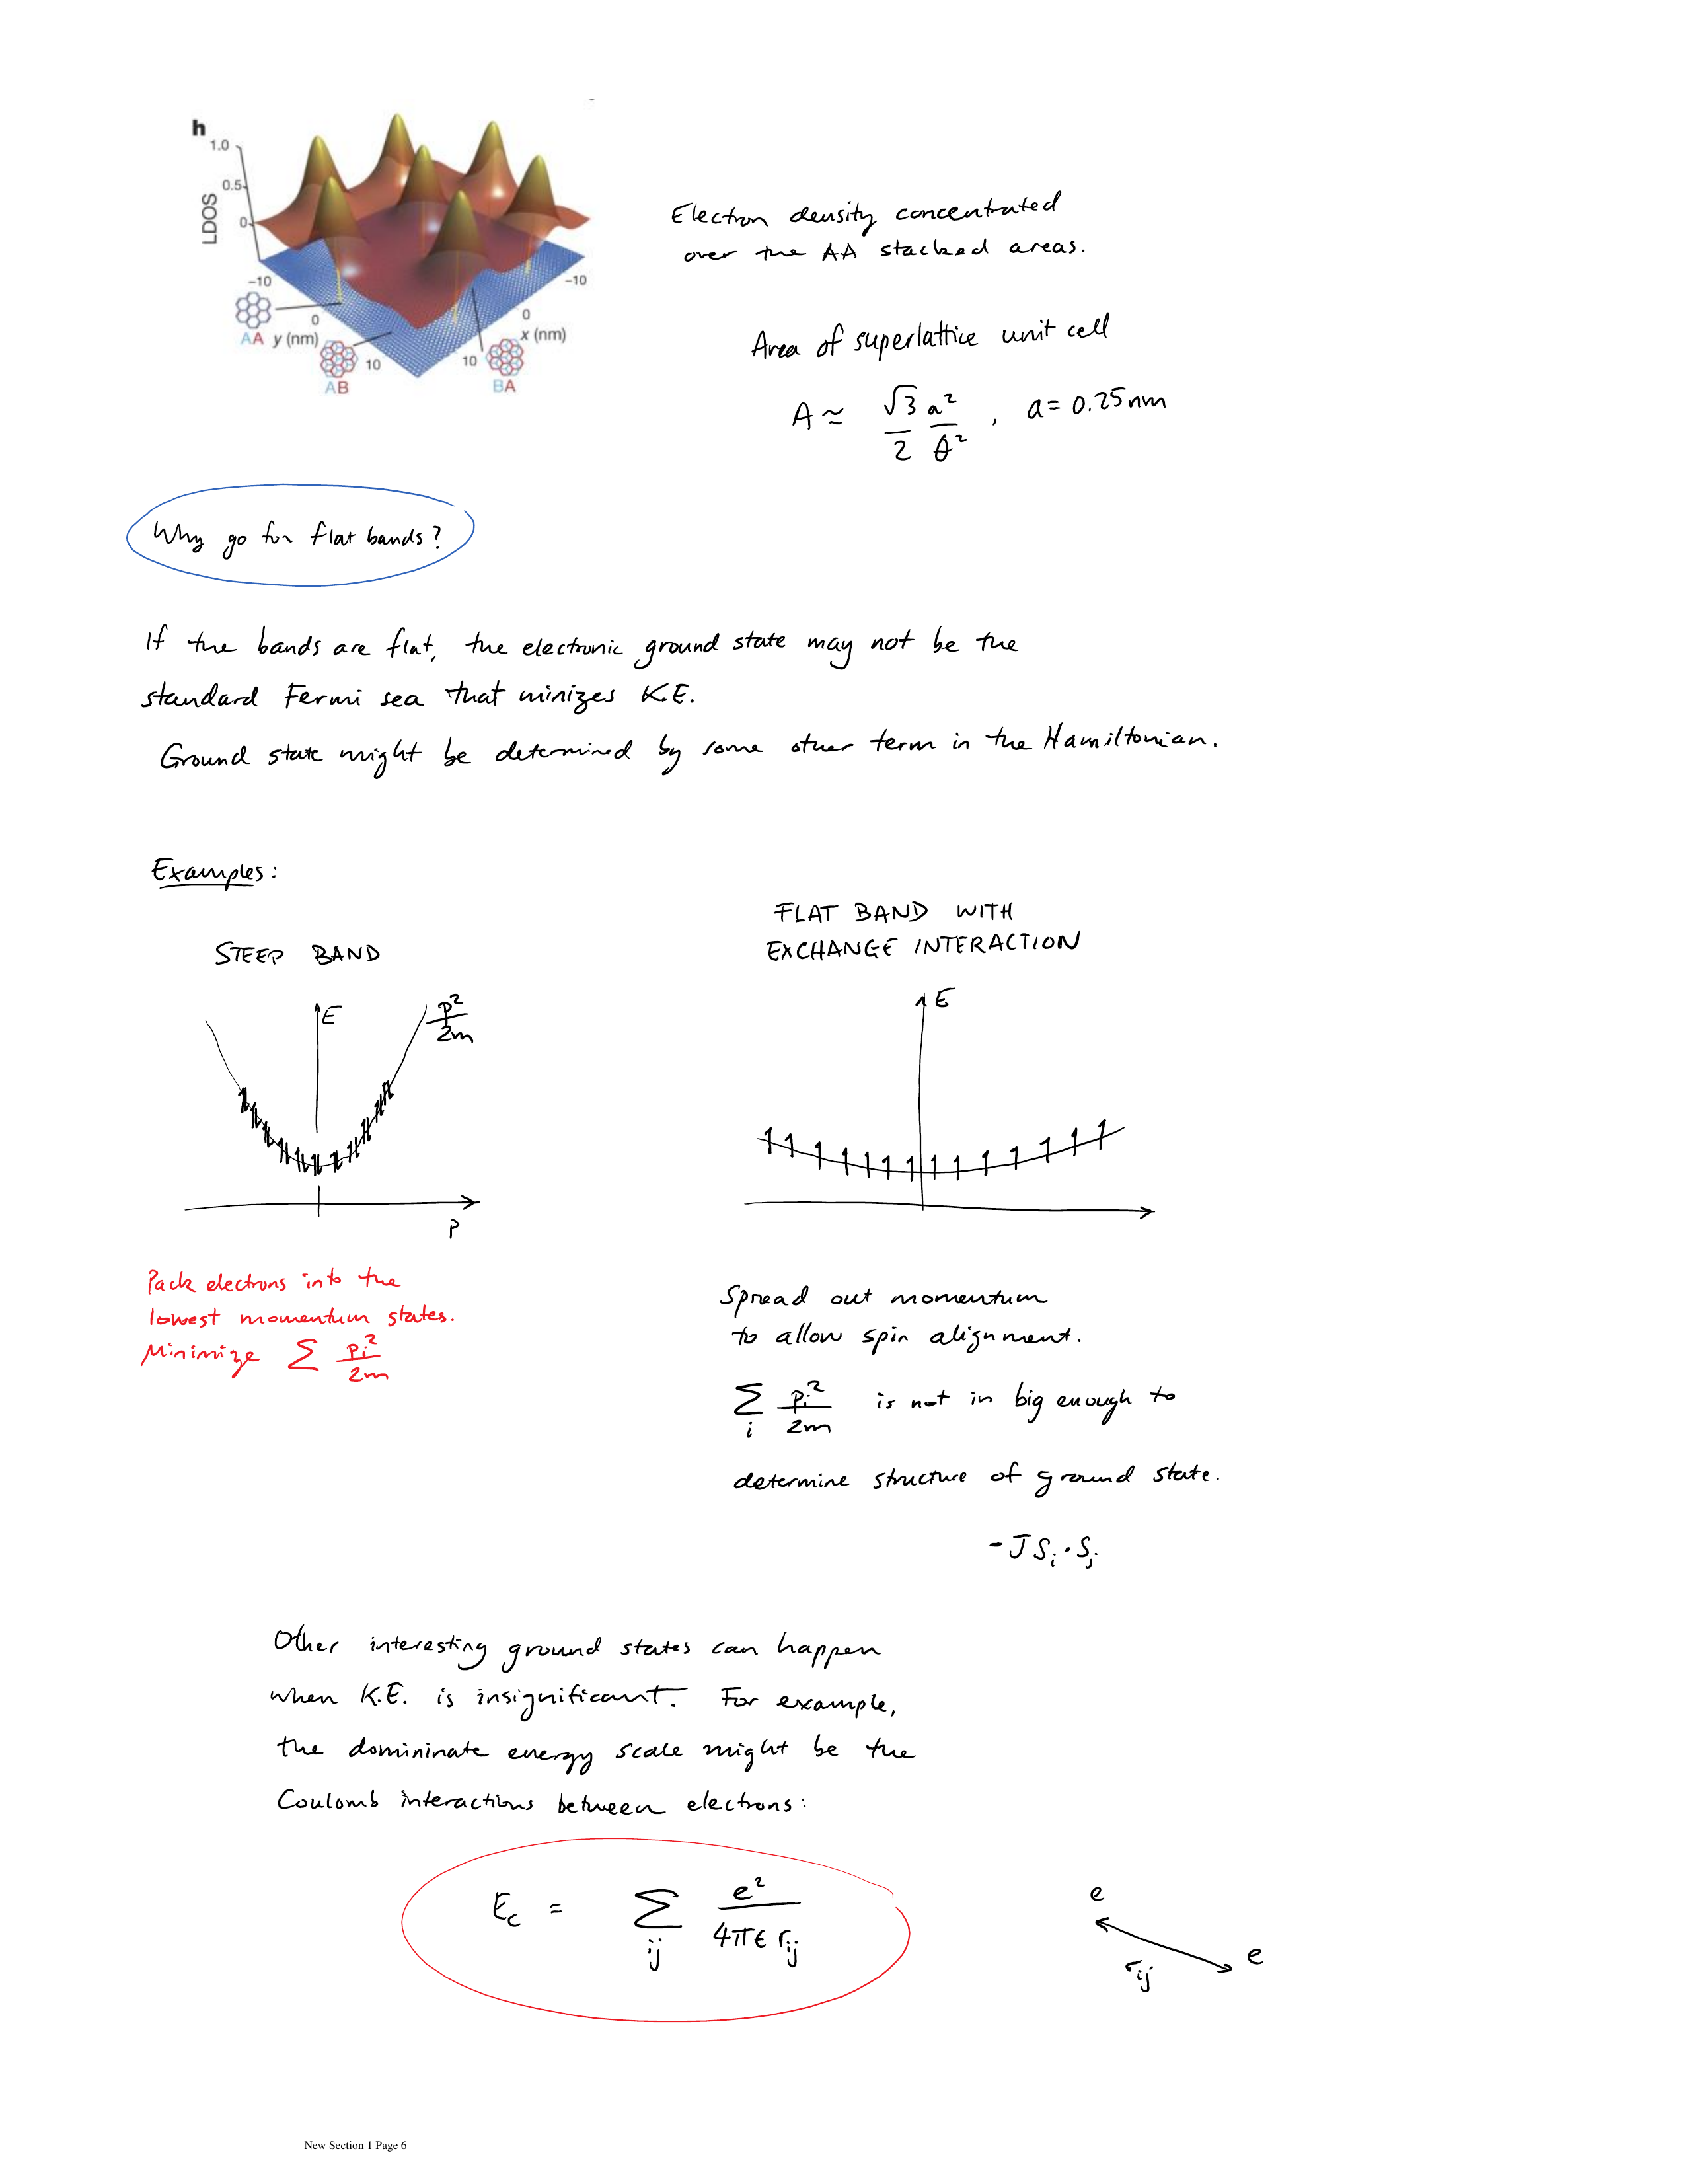 h
1.0
0.5
0
LDOS
-10
0
10
y (nm)
-10
0
10
x (nm)
AA
AB
BA
Electron density concentrated
over the AA stacked areas.
Area of superlattice unit cell
A ≃ √3/2 a²/θ² , a = 0.25nm
Why go for flat bands?
If the bands are flat, the electronic ground state may not be the
standard Fermi sea that minizes K.E.
Ground state might be determined by some other term in the Hamiltonian.
Examples:
STEEP BAND
E
p²/2m
P
Pack electrons into the
lowest momentum states.
Minimize Σ pi²/2m
FLAT BAND WITH
EXCHANGE INTERACTION
E
Spread out momentum
to allow spin alignment.
Σi pi²/2m is not in big enough to
determine structure of ground state.
-J Si · Sj
Other interesting ground states can happen
when K.E. is insignificant. For example,
the domininate energy scale might be the
Coulomb interactions between electrons:
Ec = Σij e²/4πϵ rij
e
e
rij
New Section 1 Page 6